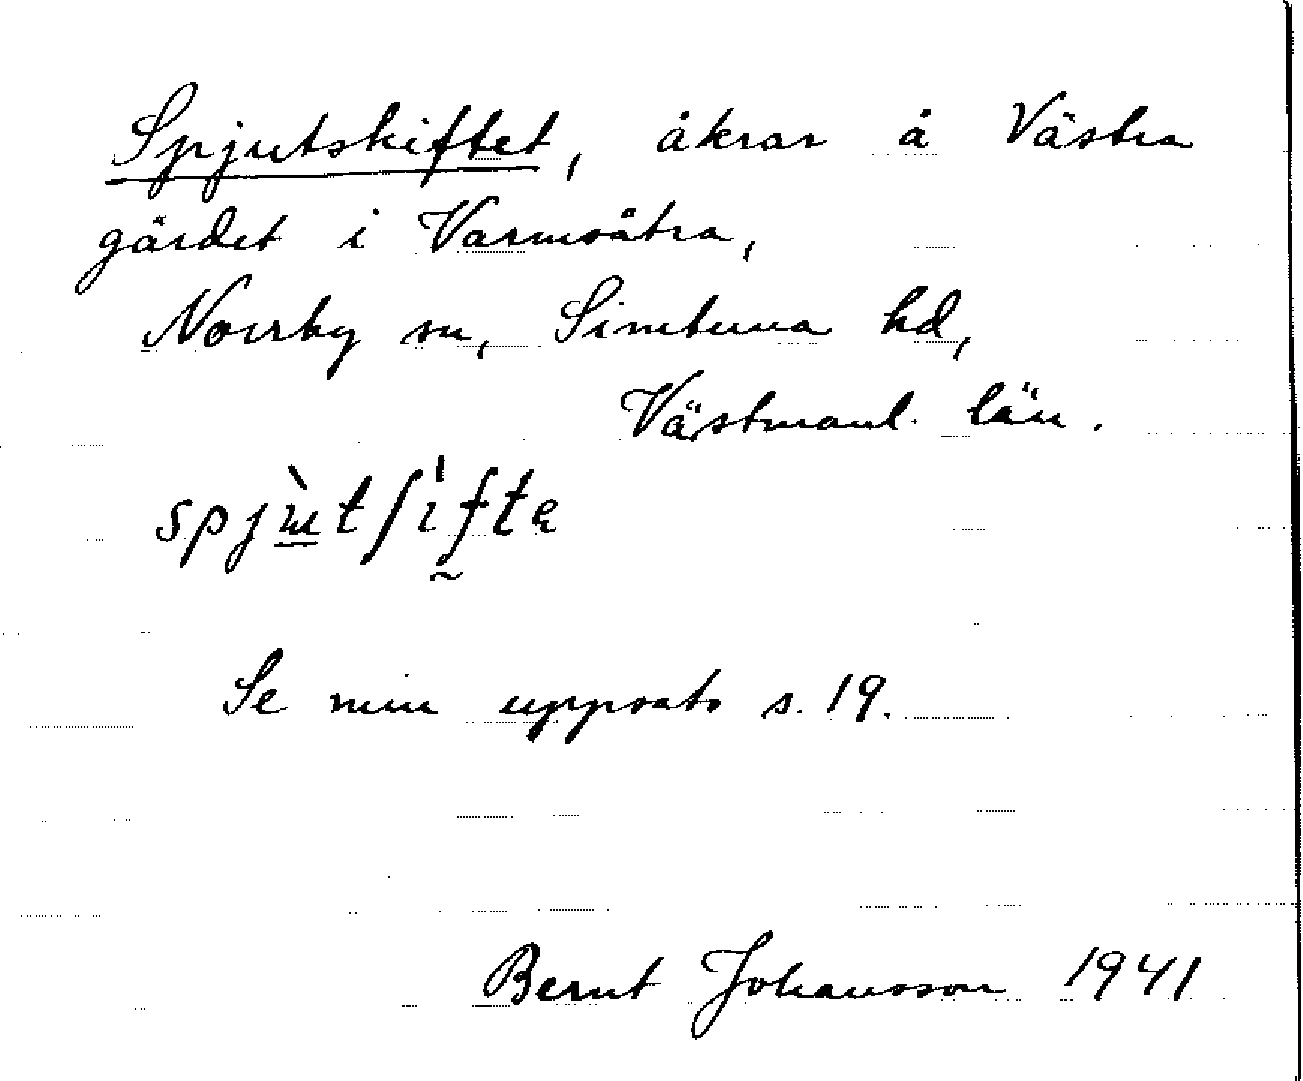 Spjutskiftet, åkrar å Västra
gärdet i Varmsätra,
Norrby sn, Simtuna hd,
Västmanl. län.
spjɯ̀tʃìfte
Se min uppsats s. 19.
Bernt Johansson 1941